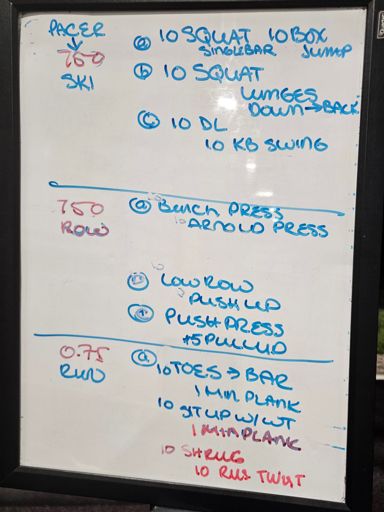 PACER
750
SKI
ⓐ 10 SQUAT 10 BOX
SINGLE BAR JUMP
ⓑ 10 SQUAT
LUNGES
DOWN → BACK
ⓒ 10 DL
10 KB SWING
750
ROW
ⓐ BENCH PRESS
10 ARNOLD PRESS
LOW ROW
PUSH UP
PUSH PRESS
+5 PULLUP
0.75
RUN
ⓐ 10 TOES → BAR
1 MIN PLANK
10 SIT UP W/WT
1 MIN PLANK
10 SHRUG
10 RUS TWIST